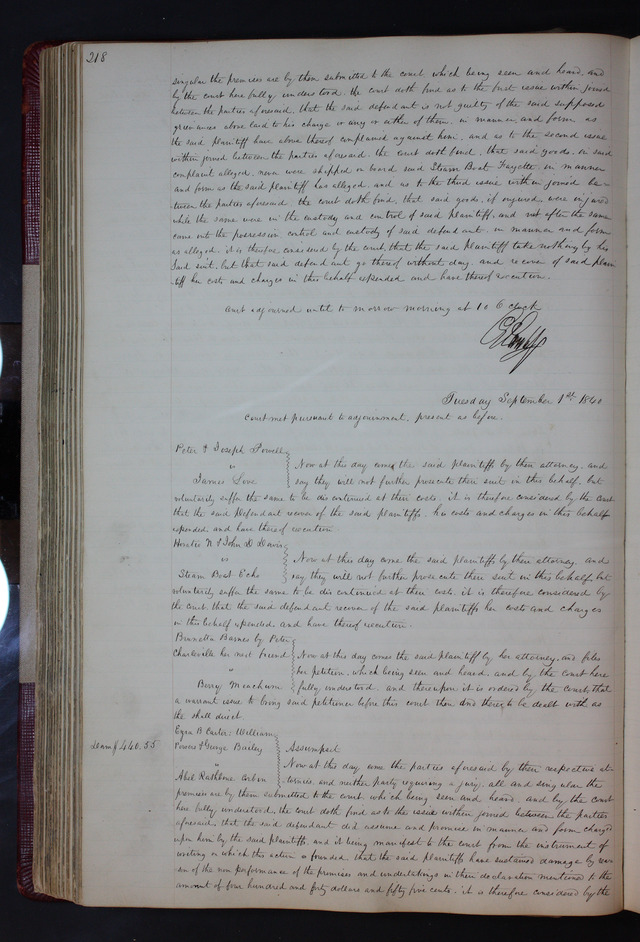 218
singular the premises are by them submitted to the court which being seen and heard, and
by the court here fully understood. the court doth find as to the first issue within joined
between the parties aforesaid, that the said defendant is not guilty of the said supposed
grievances above laid to his charge or any or either of them, in manner and form as
the said plaintiff have above thereof complained against him, and as to the second issue
within joined between the parties aforesaid. the court doth find, that said goods, in said
complaint alleged, never were shipped on board said Steam Boat Fayette in manner
and form as the said plaintiff has alleged, and as to the third issue within joined be-
tween the parties aforesaid the court doth find, that said goods, if injured were injured
while the same were in the custody and control of said plaintiff, and not after the same
came into the possession control and custody of said defendant in manner and form
as alleged. it is therefore considered by the court, that the said plaintiff take nothing by his
said suit, but that said defendant go thereof without day. and recover of said plain
tiff her costs and charges in this behalf expended and have thereof execution.
Court adjourned until to morrow morning at 10 O clock
Tuesday September 1st 1840
Court met pursuant to adjournment, present as before.
Peter & Joseph Powell
vs
James Love
Now at this day come the said plaintiffs by their attorney, and
say they will not further prosecute their suit in this behalf, but
voluntarily suffer the same to be discontinued at their costs. it is therefore considered by the court
that the said Defendant recover of the said plaintiffs, his costs and charges in this behalf
expended, and have thereof execution
Horatio N & John D Davis
vs
Steam Boat Echo
Now at this day come the said plaintiffs by their attorney and
say they will not further prosecute their suit in this behalf but
voluntarily suffer the same to be discontinued at their costs. it is therefore considered by
the court that the said defendant recover of the said plaintiffs her costs and charges
in this behalf expended, and have thereof execution.
Brunetta Barnes by Peter
Charleville her next friend
"
Berry Meachum
Now at this day comes the said plaintiff by her attorney, and files
her petition, which being seen and heard, and by the court here
fully understood, and thereupon it is ordered by the court, that
a warrant issue to bring said petitioner before this court then and there to be dealt with as
the shall direct.
Ezra B Carter William
Powers & George Bailey
"
Abel Rathbone Corbin
Dam $440.55
Assumpsit
Now at this day come the parties aforesaid by their respective at-
tornies, and neither party requiring a jury, all and singular the
premises are by them submitted to the court, which being seen and heard, and by the court
here fully understood, the court doth find as to the issue within joined between the parties
aforesaid, that the said defendant did assume and promise in manner and form charged
upon him by the said plaintiffs, and it being manifest to the court from the instrument of
writing on which the action is founded, that the said plaintiffs have sustained damage by reas
on of the non performance of the promises and undertakings in their declaration mentioned to the
amount of four hundred and forty dollars and fifty five cents. it is therefore considered by the